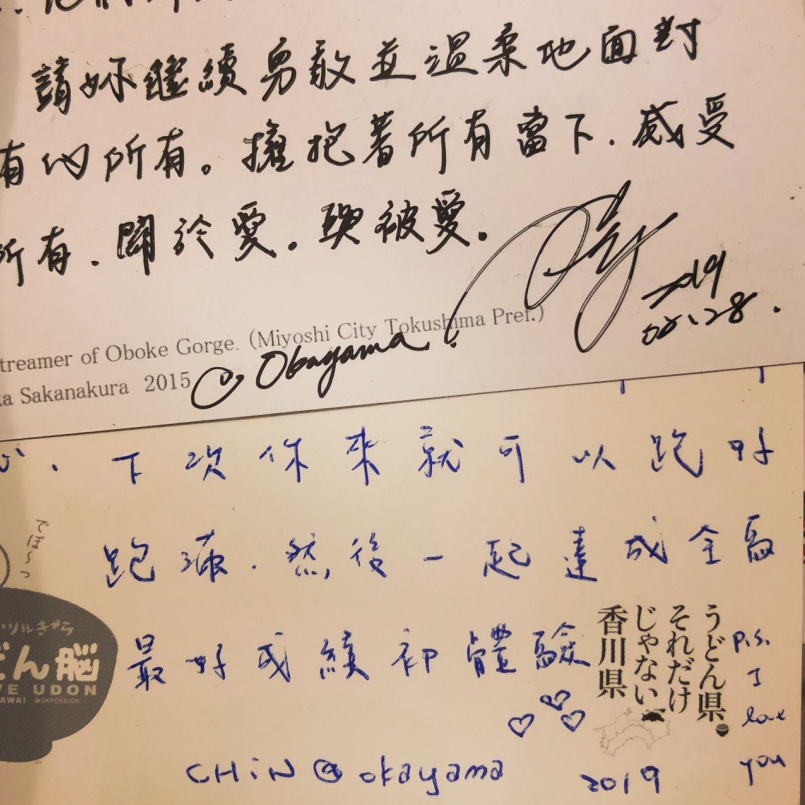 請妳繼續勇敢並溫柔地面對
有的所有。擁抱著所有當下.感受
所有.關於愛。與被愛。
2019
treamer of Oboke Gorge. (Miyoshi City Tokushima Pref.)
ka Sakanakura 2015
@ Okayama.
下次你來就可以跑好
跑滿.然後一起達成全馬
最好成績初體驗
でぼ〜っ
ツルきゃら
どん脳
VE UDON
AWAI
うどん県。
それだけ
じゃない
香川県
P.S.
I
love
you
CHiN @ okayama
2019